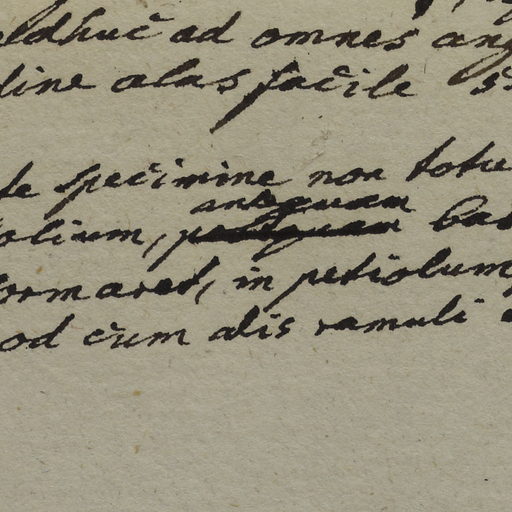 adhuc ad omnes ang
dine alas facile
te specimine non totu
antequam
olium, postquam bas
formaret, in petiolum
od cum alis ramuli